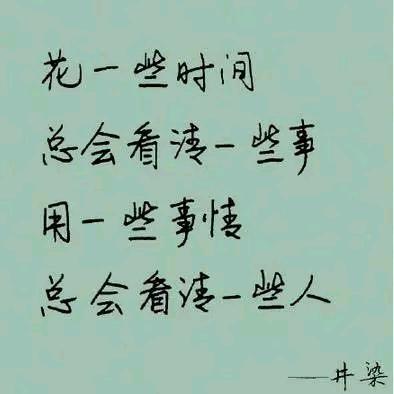 花一些时间
总会看清一些事
用一些事情
总会看清一些人
——井染